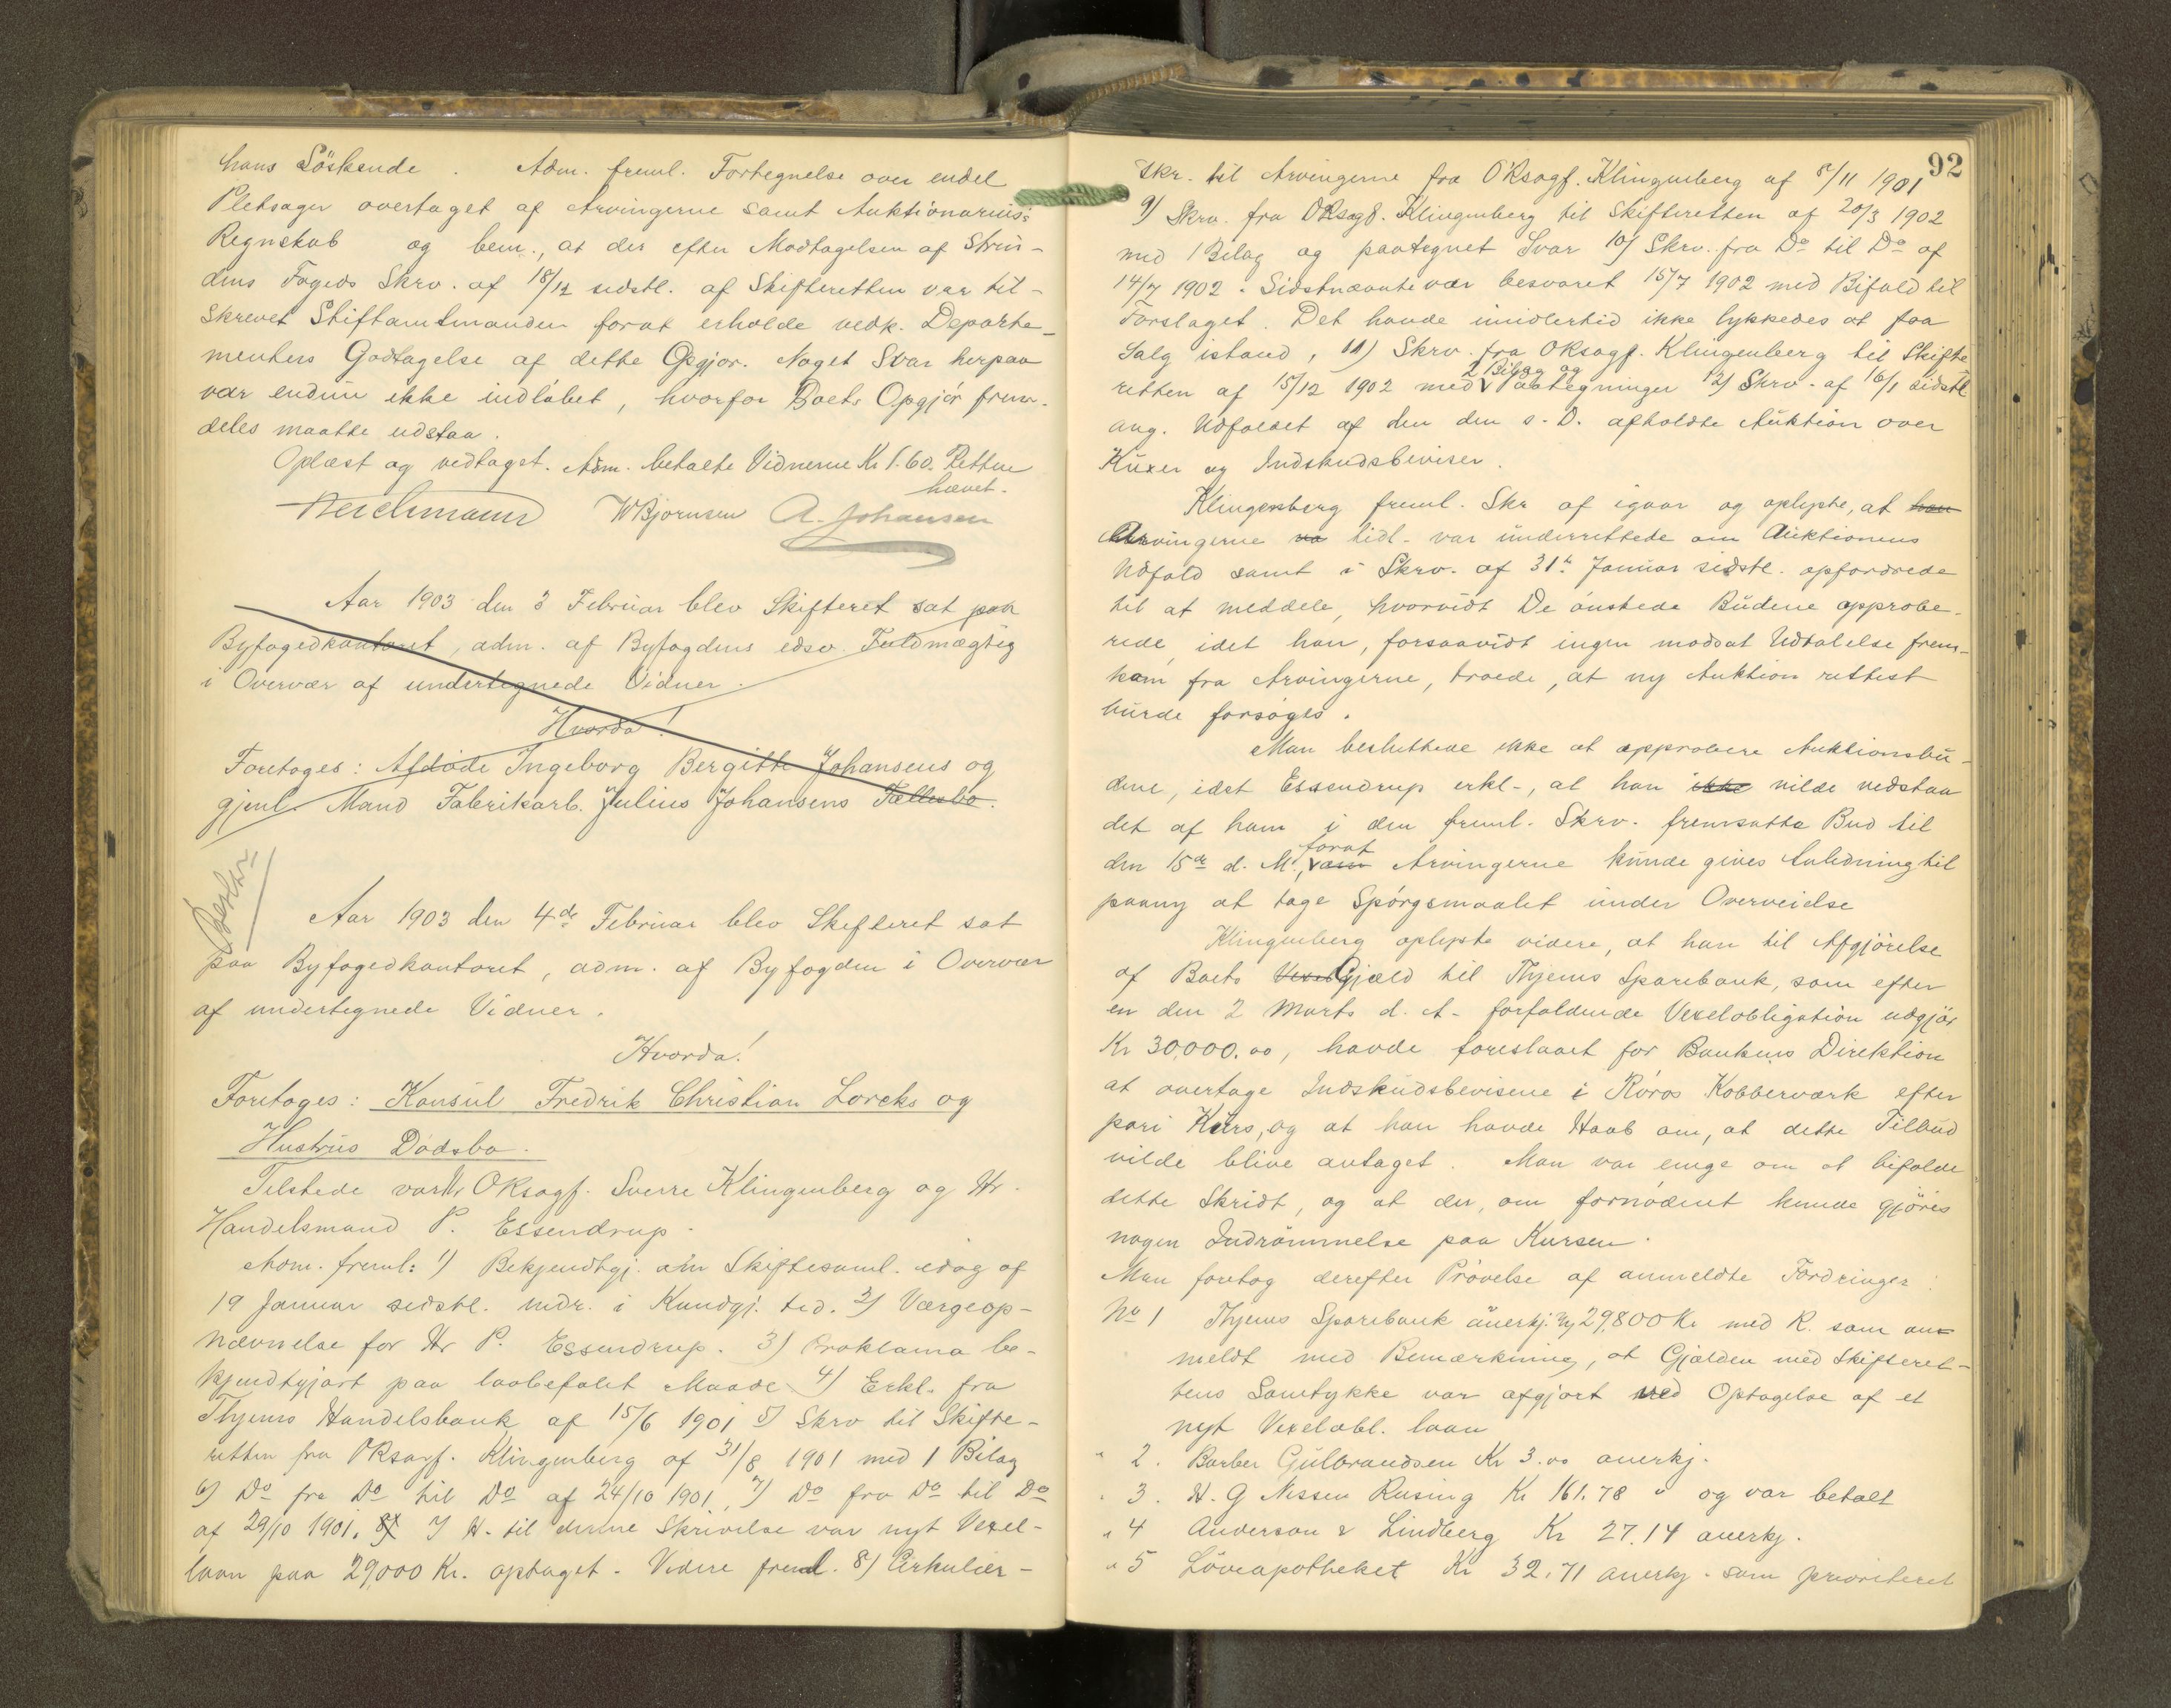 hans Söskende . Adm. freml. Fortegnelse over endel
Pletsager overtaget af Arvingerne samt Auktionarius's
Regnskab og bem., at der efter Modtagelsen af Strin-
dens Fogeds Skrv. af 18/12 sidstl. af Skifteretten var til-
skrevet Stiftamtmanden forat erholde vedk. Departe-
menters Godtagelse af dette Opgjør. Noget Svar herpaa
var endnu ikke indløbet, hvorfor Boets Opgjör frem-
deles maatte udstaa.
Oplæst og vedtaget. Adm. betalte Vidnerne Kr 1.60. Retten
hævet.
WBjørnsen A. Johansen
Aar 1903 den 3 Februar blev Skifteret sat paa
Byfogedkontoret, adm. af Byfogdens edsv. Fuldmægtig
i Overvær af undertegnede Vidner.
Hvorda!
Foretoges: Afdøde Ingeborg Bergitte Johansens og
gjenl. Mand Fabrikarb. Julius Johansens Fællesbo.
Aar 1903 den 4de Februar blev Skifteret sat
paa Byfogedkontoret, adm. af Byfogden i Overvær
af undertegnede Vidner.
Hvorda!
Foretoges: Konsul Fredrik Christian Lorcks og
Hustrus Dødsbo.
Tilstede var Hr OKsagf. Sverre Klingenberg og Hr.
Handelsmand P. Essendrup.
Adm. freml: 1) Bekjendtgj. om Skiftesaml. idag af
19 Januar sidstl. indr. i Kundgj. tid. 2) Værgeop-
nævnelse for Hr P. Essendrup. 3) Proklama be-
kjendtgjort paa lovbefalet Maade 4) Erkl. fra
Thjems Handelsbank af 15/6 1901 5) Skrv til Skifte-
retten fra OKsagf. Klingenberg af 31/8 1901 med 1 Bilag
6) Do fra Do til Do af 24/10 1901, 7) Do fra Do til Do
af 29/10 1901. 8) I H. til denne Skrivelse var nyt Vexel-
laan paa 29,000 Kr. optaget. Videre freml. 8) Cirkulær-
92
skr. til Arvingerne fra OKsagf. Klingenberg af 8/11 1901
9) Skrv. fra OKsagf. Klingenberg til Skifteretten af 20/3 1902
med 1 Bilag og paategnet Svar 10) Skrv. fra Do til Do af
14/7 1902. Sidstnævnte var besvaret 15/7 1902 med Bifald til
Forslaget. Det havde imidlertid ikke lykkedes at faa
Salg istand, 11) Skrv. fra OKsagf. Klingenberg til Skifte-
2 Bilag og
retten af 15/12 1902 med Paategninger 12) Skrv. af 16/1 sidstl
ang. Udfaldet af den den s. D. afholdte Auktion over
Kuxer og Indskudsbeviser.
Klingenberg freml. Skr af igaar og oplyste, at han
Arvingerne va tidl. var underrettede om Auktionens
Udfald samt i Skrv. af 31te Januar sidstl. opfordrede
til at meddele, hvorvidt De ønskede Budene approbe-
rede, idet han, forsaavidt ingen modsat Udtalelse frem-
kom fra Arvingerne, troede, at ny Auktion rettest
burde forsøges.
Man besluttede ikke at approbere Auktionsbu-
dene, idet Essendrup erkl., at han ikke vilde vedstaa
det af ham i den freml. Skrv. fremsatte Bud til
forat
den 15de d. M., om Arvingerne kunde gives Anledning til
paany at tage Spørgsmaalet under Overveielse
Klingenberg oplyste videre, at han til Afgjörelse
af Boets Vexel Gjæld til Thjems Sparebank, som efter
en den 2 Marts d. A. forfaldende Vexelobligation udgjör
Kr 30,000.00, havde foreslaaet for Bankens Direktion
at overtage Indskudsbevisene i Röros Kobberværk efter
pari Kurs, og at han havde Haab om, at dette Tilbud
vilde blive antaget. Man var enige om at bifalde
dette Skridt, og at der, om fornødent kunde gjöres
nogen Indrömmelse paa Kursen.
Man foretog derefter Prövelse af anmeldte Fordringer:
No 1 Thjems Sparebank anerkj. 29,800 Kr med R. som an-
meldt med Bemærkning, at Gjælden med Skifteret-
tens Samtykke var afgjort ved Optagelse af et
nyt Vexelobl. laan
" 2. Barber Gulbrandsen Kr 3.00 anerkj.
" 3. H. G Nissen Rusing Kr 161.78 " og var betalt
" 4 Anderson & Lindberg Kr 27.14 anerkj.
" 5 Löveapotheket Kr 32.71 anerkj. som prioriteret